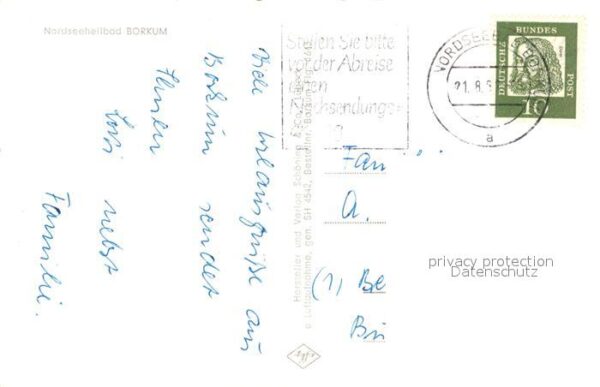 Nordseeheilbad BORKUM
Stellen Sie bitte
vor der Abreise
einen
Nachsendungs=
NORDSEEBAD
21.8.6
a
DEUTSCHE
BUNDES
POST
10
Viele Urlaubsgrüße aus
Borkum sendet
Ihnen
nebst
Familie.
Hersteller und Verlag Schöning & Co
Luftaufnahme, gen. SH 4542, Bestellnr.
Fam
A.
(1) Be
privacy protection
Datenschutz